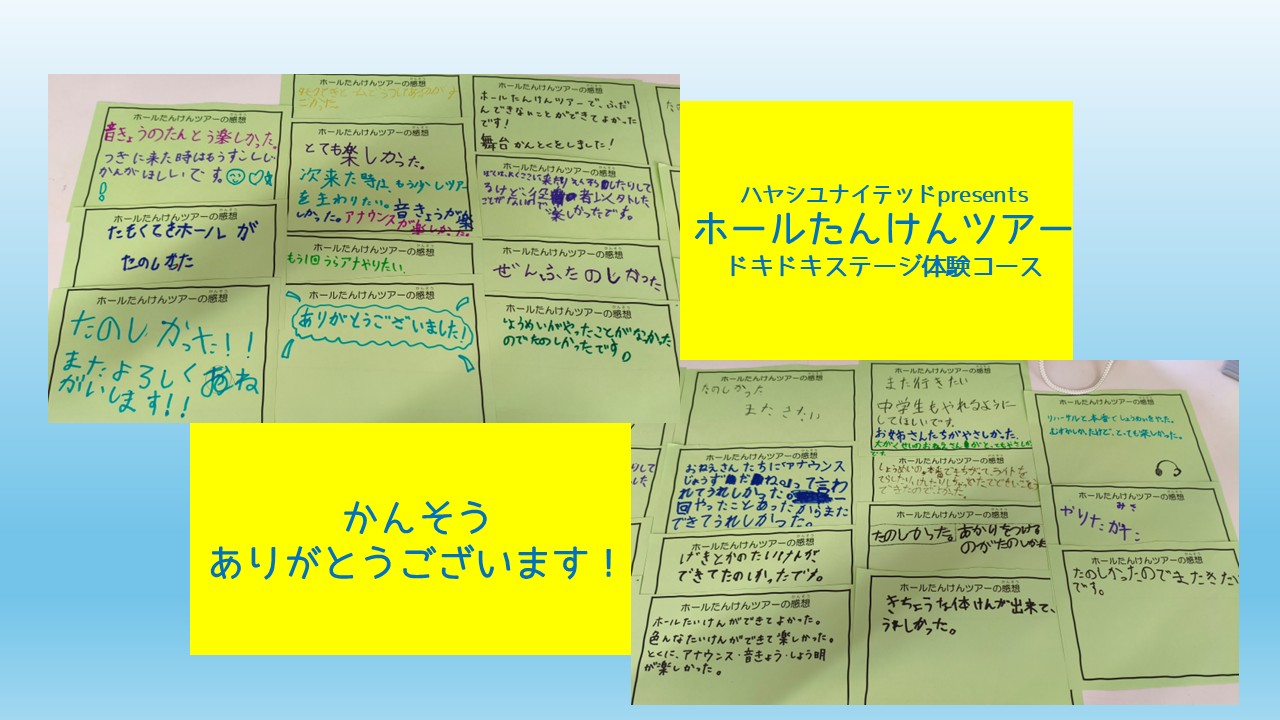 ハヤシユナイテッドpresents
ホールたんけんツアー
ドキドキステージ体験コース
かんそう
ありがとうございます！
ホールたんけんツアーの感想
音きょうのたんとう楽しかった。
つぎに来た時はもうすこしじ
かんがほしいです。
ホールたんけんツアーの感想
たもくてきホールが
たのしかった
ホールたんけんツアーの感想
たのしかった！！
またよろしくおね
がいします！！
ホールたんけんツアーの感想
ホールたんけんツアーの感想
とても楽しかった。
次来た時は、もう少しツアー
を主わりたい。音きょうが楽
しかった。アナウンスが楽しかった。
ホールたんけんツアーの感想
もう1回うらアナやりたい。
ホールたんけんツアーの感想
ありがとうございました!
ホールたんけんツアーの感想
ホールたんけんツアーで、ふだ
んできないことができてよかった
です!
舞台かんとくをしました!
ホールたんけんツアーの感想
るけど、役者以外した
ことがないので
楽しかったです。
ホールたんけんツアーの感想
ぜんぶたのしかった
ホールたんけんツアーの感想
しょうめいがやったことがなかった
のでたのしかったです。
ホールたんけんツアーの感想
たのしかった
またきたい
ホールたんけんツアーの感想
おねえさんたちにアナウンス
じょうずだねって言わ
れてうれしかった。
回やったことあったからまた
できてうれしかった。
ホールたんけんツアーの感想
げきとかのたいけんが
できてたのしかったです。
ホールたんけんツアーの感想
ホールたいけんができてよかった。
色んなたいけんができて楽しかった。
とくに、アナウンス・音きょう・しょう明
が楽しかった。
ホールたんけんツアーの感想
また行きたい
中学生もやれるように
してほしいです。
お姉さんたちがやさしかった。
ホールたんけんツアーの感想
ホールたんけんツアーの感想
たのしかった。あかりをつける
のがたのしかった
ホールたんけんツアーの感想
きちょうな体けんが出来て、
うれしかった。
ホールたんけんツアーの感想
リハーサルと本番でしょうめいをやった。
むずかしかったけど、とっても楽しかった。
ホールたんけんツアーの感想
ホールたんけんツアーの感想
たのしかったのでまたきたい
です。